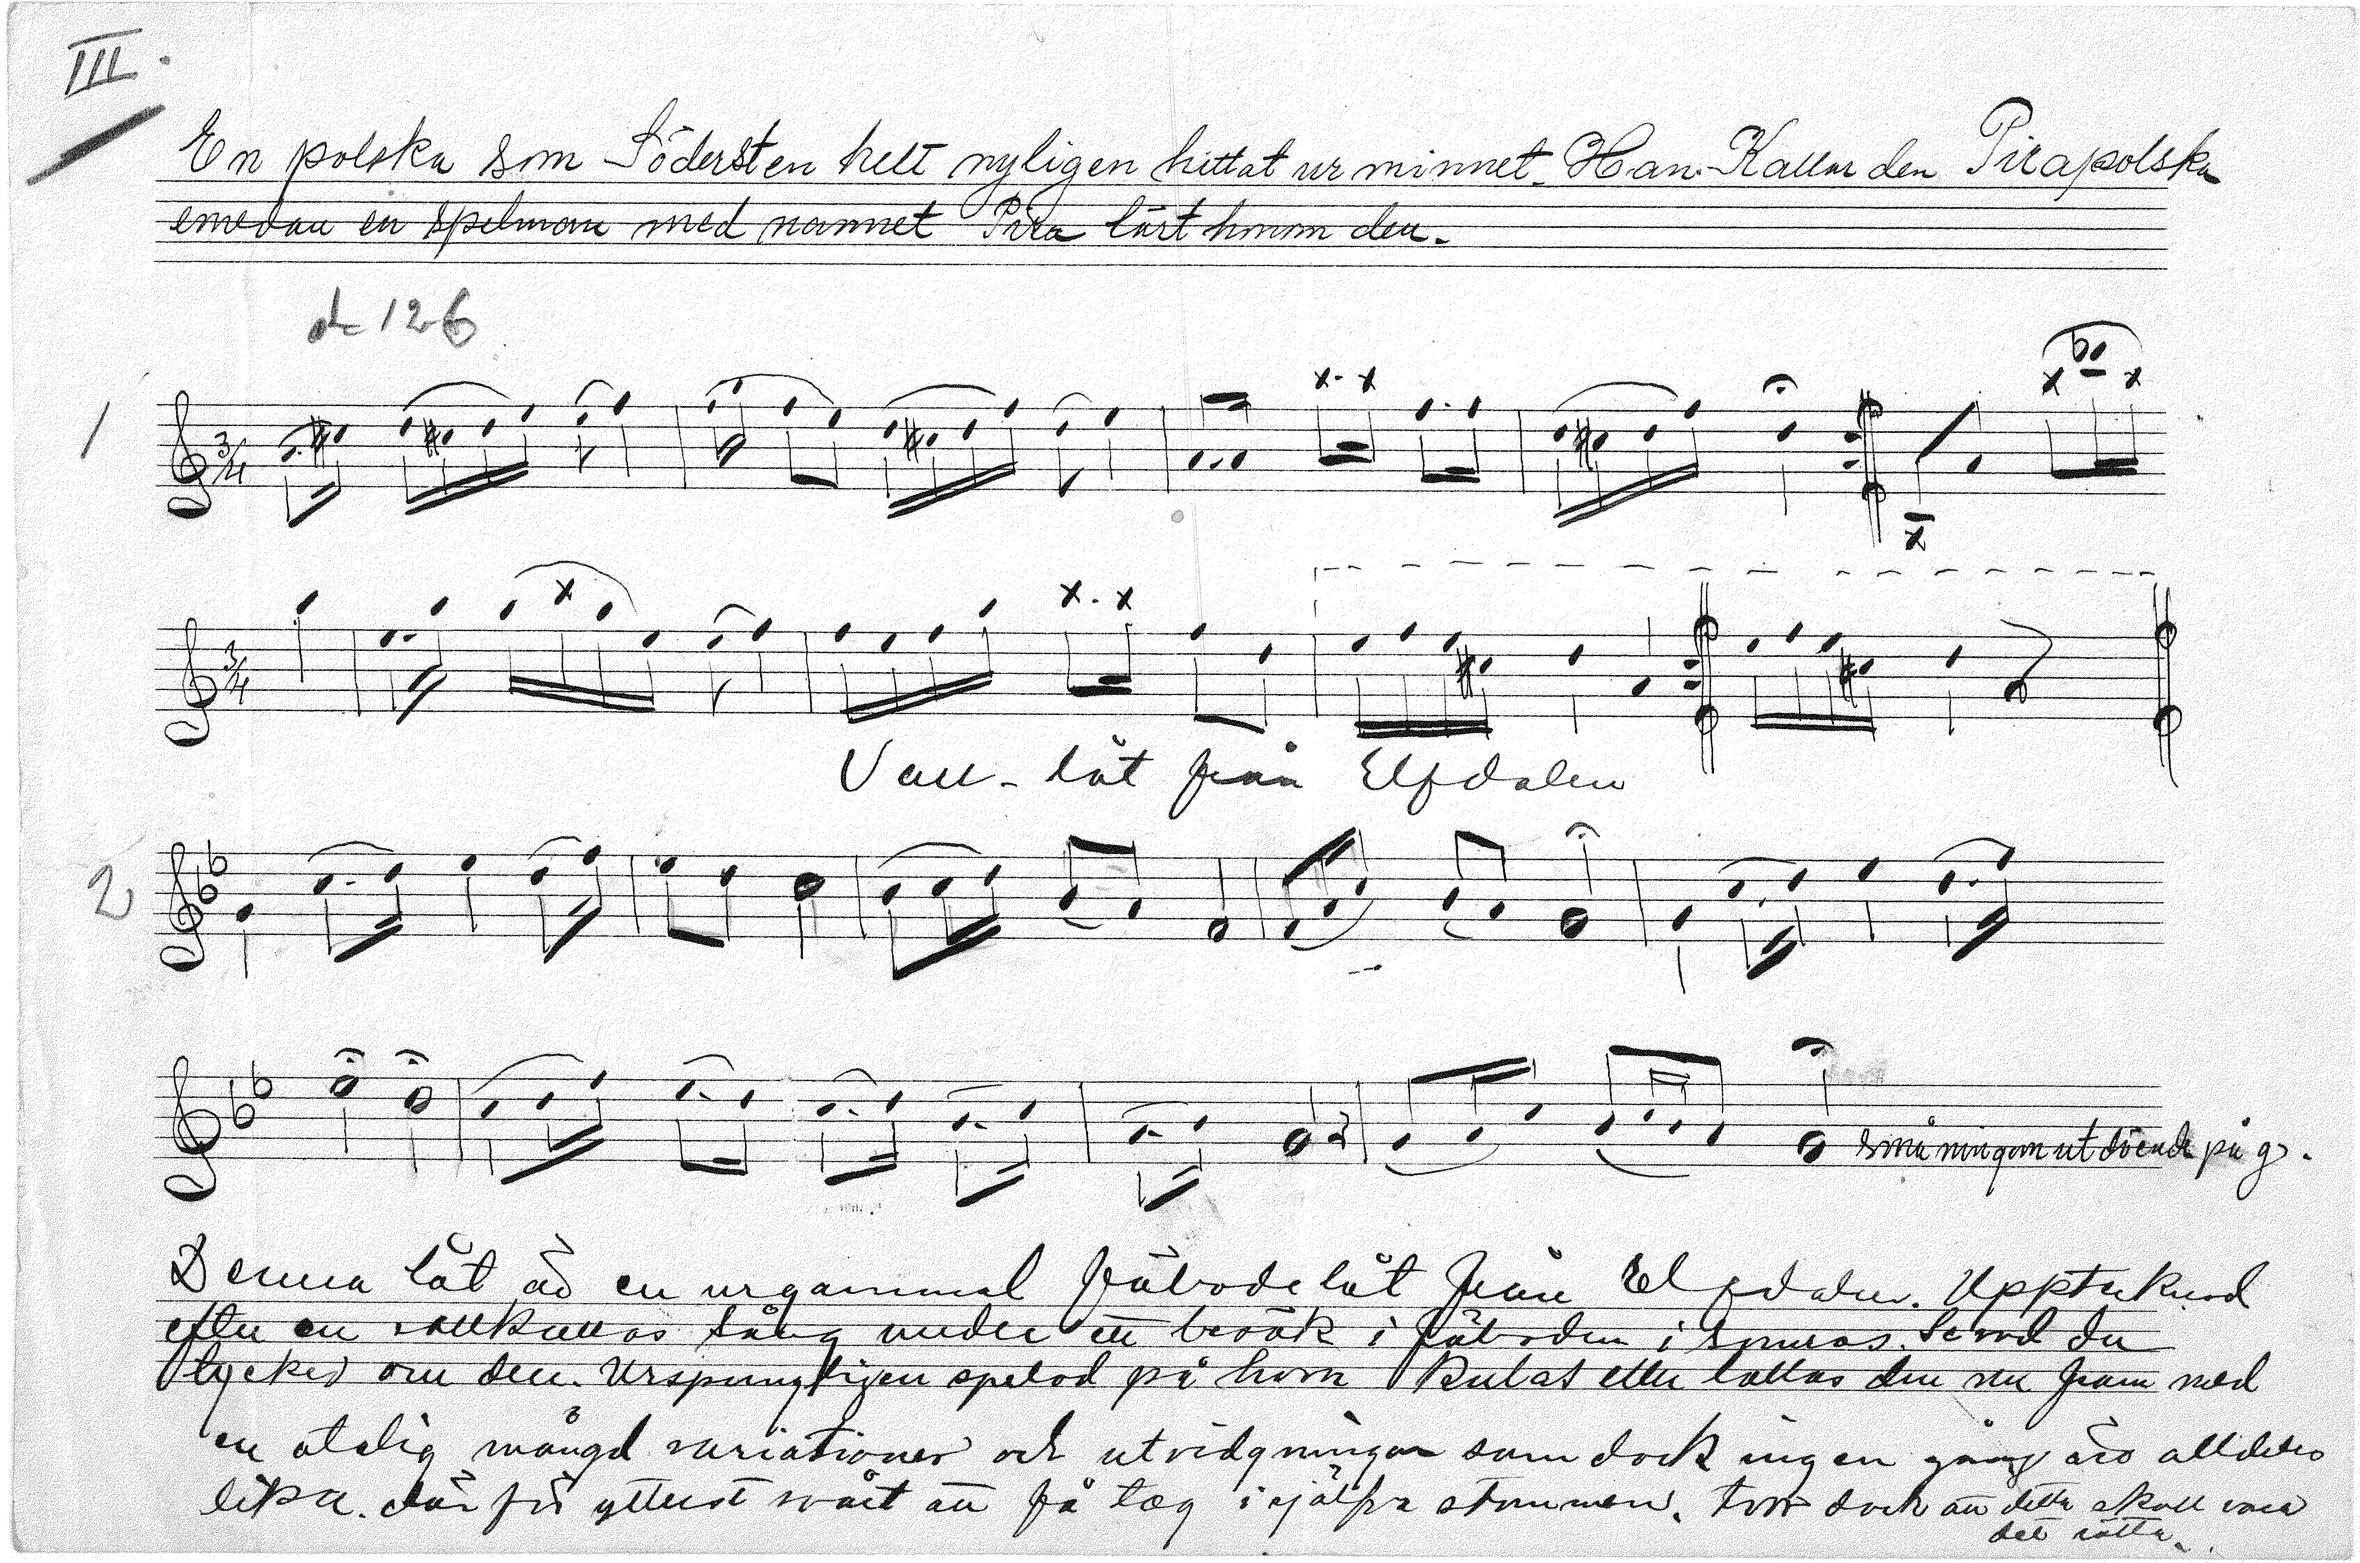 III.
En polska som Södersten helt nyligen hittat ur minnet. Han Kallar den Pirapolska
emedan en spelman med namnet Pira lärt honom den.
126
1
3/4
3/4
Vall-låt från Elfdalen
2
småningom utdöende på g.
Denna låt är en urgammal fäbodelåt från Elfdalen. Upptecknad
efter en vallkullas sång under ett besök i fäboden i du
tycker om den. Ursprungligen spelad på horn eller lallas den nu fram med
en otalig mängd variationer och utvidgningar som dock ingen gång äro alldeles
lika. därför ytterst svårt att få tag i själfva stommen. tror dock att detta skall vara
det rätta.